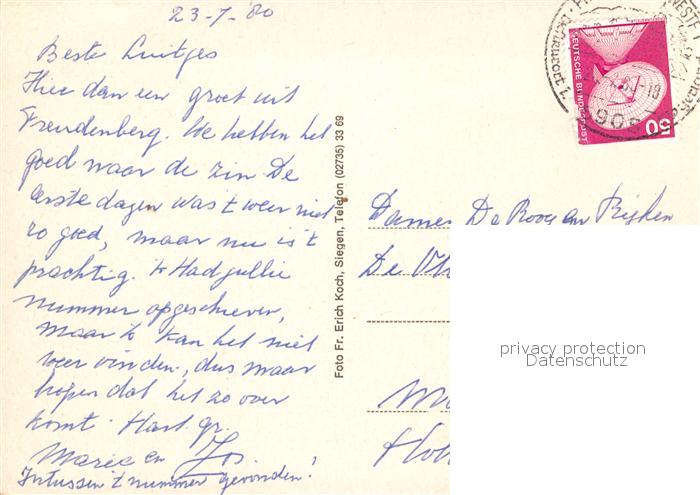 23-7-80
Beste Luitjes
Hier dan een groet uit
Freudenberg. We hebben het
goed naar de zin De
eerste dagen was 't weer niet
zo goed, maar nu is 't
prachtig. 'k Had jullie
nummer opgeschreven,
maar 'k kan het niet
weer vinden, dus maar
hopen dat het zo over
komt. Hart. gr.
Marie en Jos.
Intussen 't nummer gevonden!
Foto Fr. Erich Koch, Siegen, Telefon (02735) 33 69
DEUTSCHE BUNDESPOST
50
Dames De Rooy en Rijken
De
privacy protection
Datenschutz